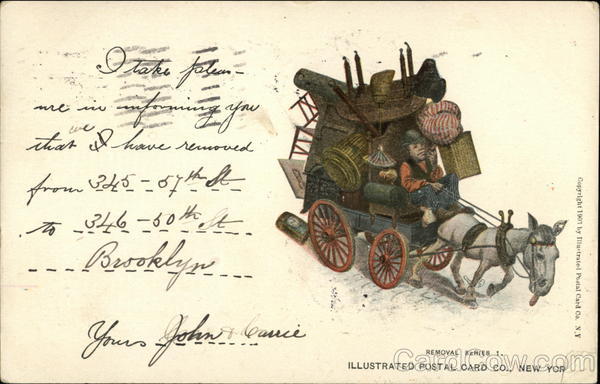 I take pleas-
ure in informing you
we
that I have removed
from 345-57th St
to 346-50th St
Brooklyn
Yours John & Carrie
REMOVAL SERIES 1.
ILLUSTRATED POSTAL CARD CO., NEW YORK
Copyright 1907 by Illustrated Postal Card Co. N.Y
CardCow.com